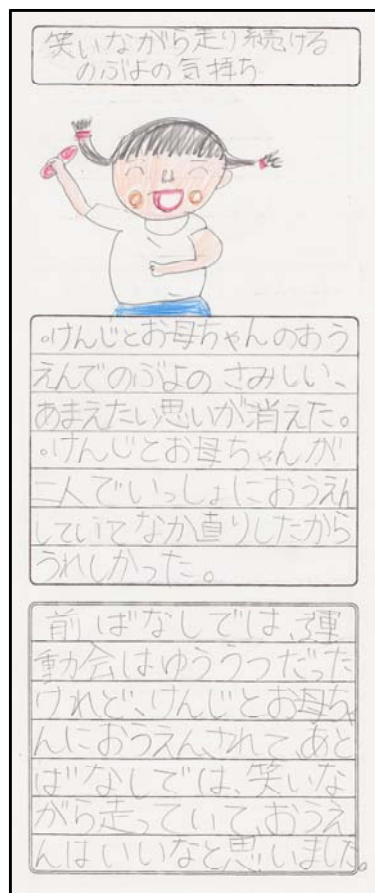 笑いながら走り続ける
のぶよの気持ち
。けんじとお母ちゃんのおう
えんでのぶよの さみしい、
あまえたい思いが消えた。
。けんじとお母ちゃんが
二人でいっしょにおうえん
していてなか直りしたから
うれしかった。
前ばなしでは、運
動会はゆううつだった
けれど、けんじとお母ち
んにおうえんされて、あと
ばなしでは、笑いな
がら走っていて、おうえ
んはいいなと思いました。